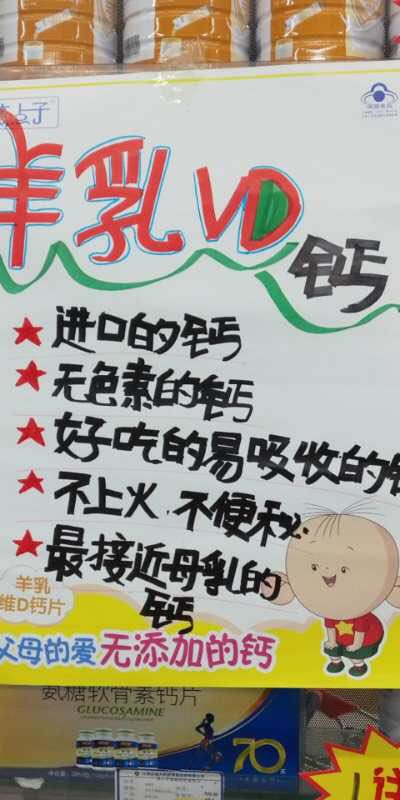 点子
保健食品
羊乳VD
钙
进口的钙
无色素的钙
好吃的易吸收的钙
不上火,不便秘
最接近母乳的
钙
羊乳
维D钙片
父母的爱 无添加的钙
氨糖软骨素钙片
GLUCOSAMINE
70天